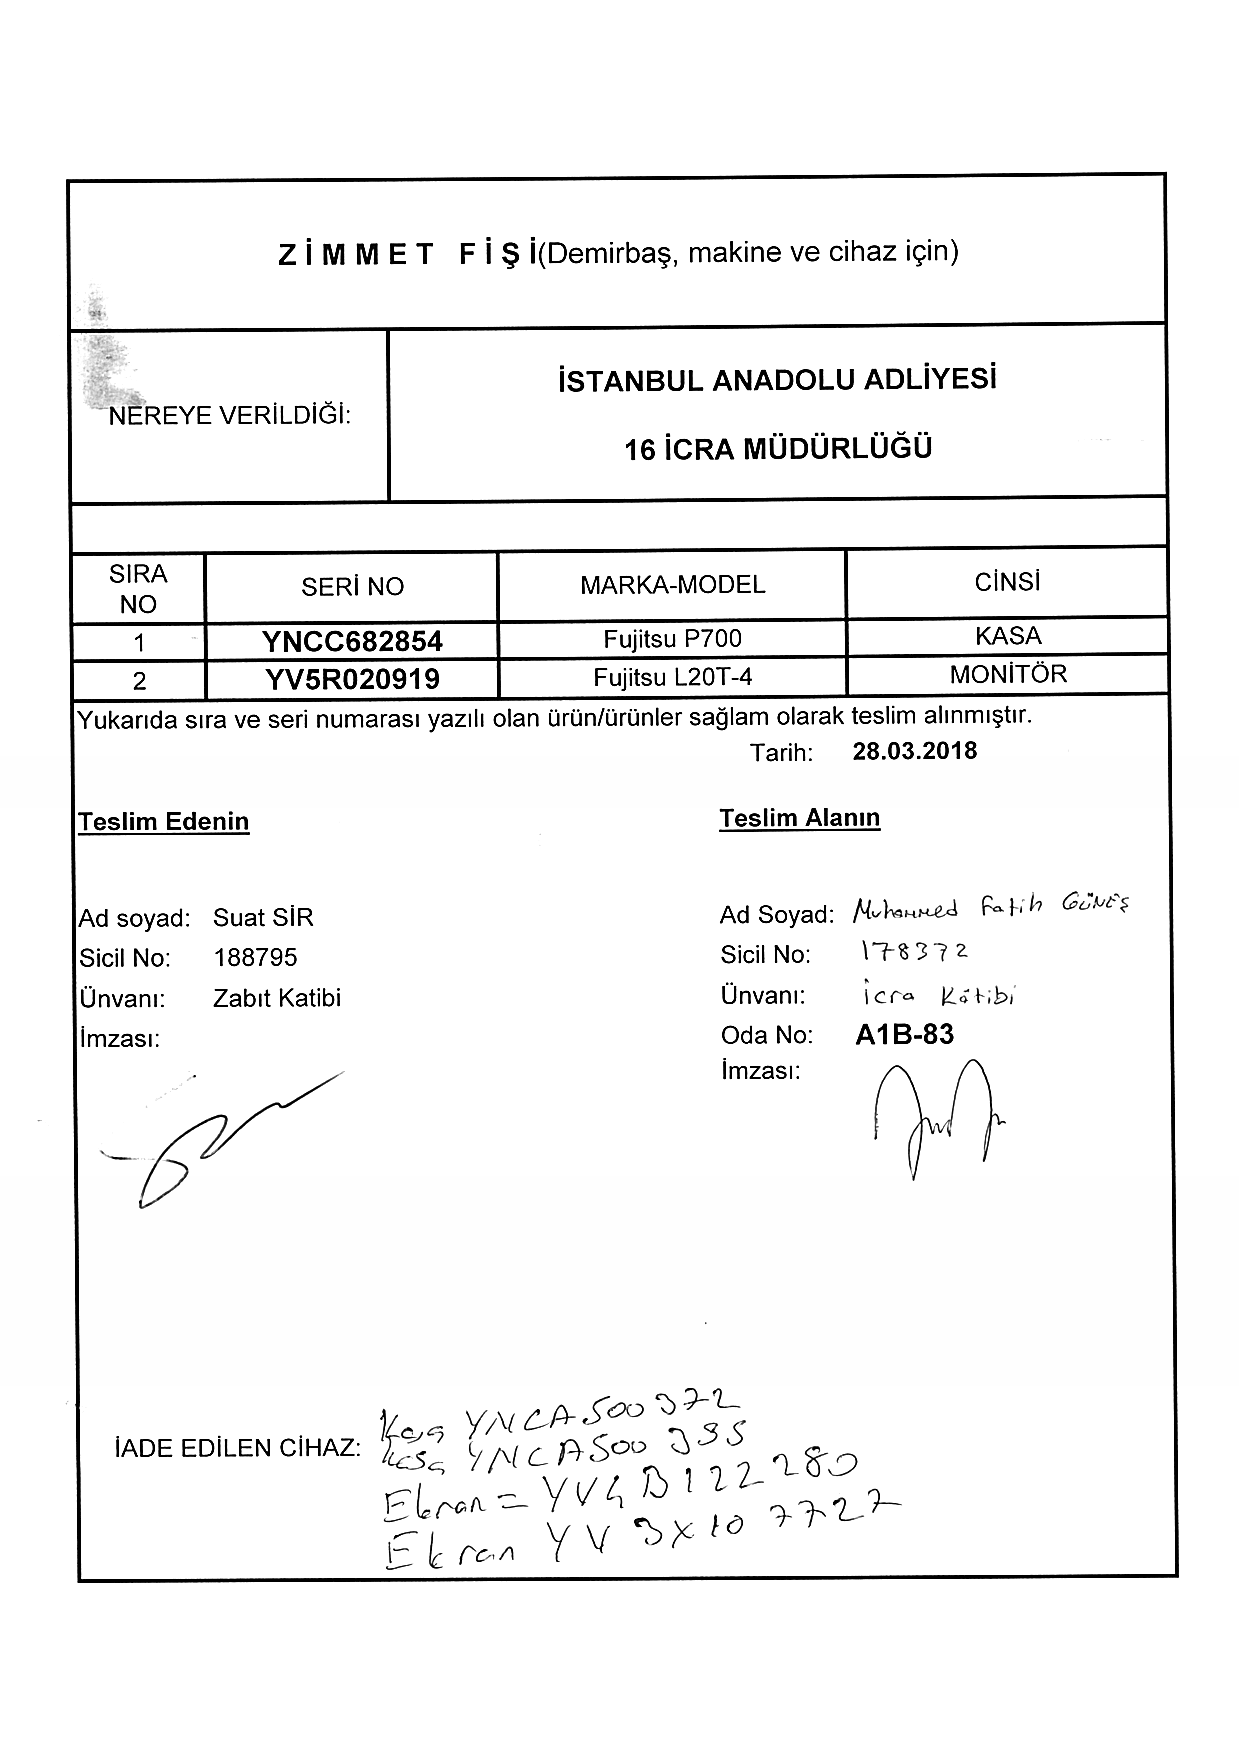 ZİMMET FİŞİ(Demirbaş, makine ve cihaz için)
NEREYE VERİLDİĞİ:
İSTANBUL ANADOLU ADLİYESİ
16 İCRA MÜDÜRLÜĞÜ
SIRA NO SERİ NO MARKA-MODEL CİNSİ
1 YNCC682854 Fujitsu P700 KASA
2 YV5R020919 Fujitsu L20T-4 MONİTÖR
Yukarıda sıra ve seri numarası yazılı olan ürün/ürünler sağlam olarak teslim alınmıştır.
Tarih: 28.03.2018
Teslim Edenin
Ad soyad: Suat SİR
Sicil No: 188795
Ünvanı: Zabıt Katibi
İmzası:
Teslim Alanın
Ad Soyad: Muhammed Fatih GÜNEŞ
Sicil No: 178372
Ünvanı: icra Kâtibi
Oda No: A1B-83
İmzası:
İADE EDİLEN CİHAZ:
Kasa YNCA500372
Kasa YNCA500335
Ekran = YV4B122280
Ekran YV3X107727